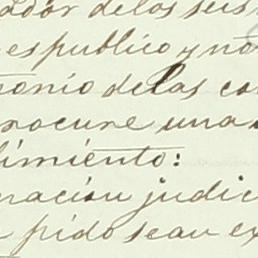 ador de los seis
es publico y no
onio de las co
rocure una
dimiento:
ración judic
pido sean ex